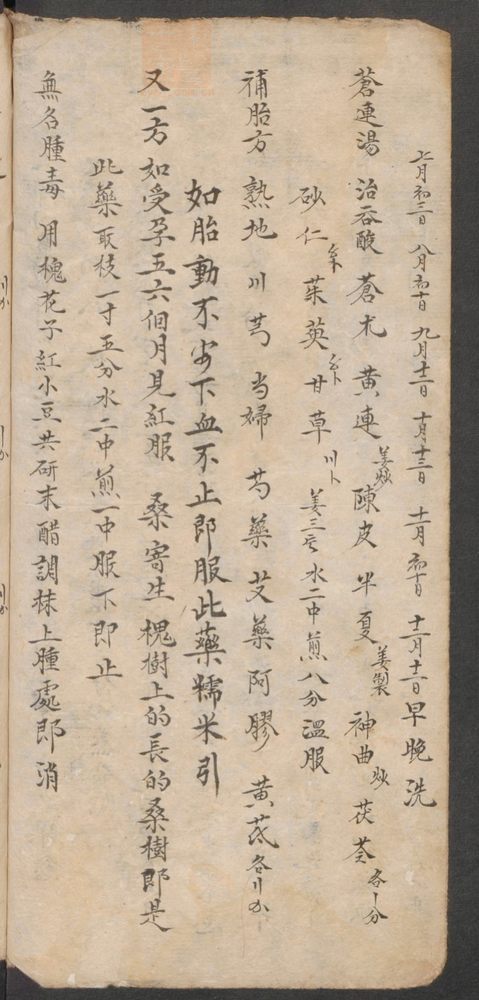 七月初三日 八月初十日 九月十二日 十月十三日 十一月初十日 十二月十二日早晚洗
蒼連湯 治吞酸 蒼朮 黄連姜炒 陳皮 半夏姜製 神曲炒 茯苓各一分
砂仁 茱萸 甘草 姜三 水二中煎八分溫服
補胎方 熟地 川芎 当婦 芍藥 艾藥 阿膠 黄芪各
如胎動不安下血不止即服此藥糯米引
又一方如受孕五六個月見紅服 桑寄生 槐樹上的長的桑樹即是
此藥取枝一寸五分水二中煎一中服下即止
無名腫毒 用槐花子紅小豆共研末醋調抹上腫處即消